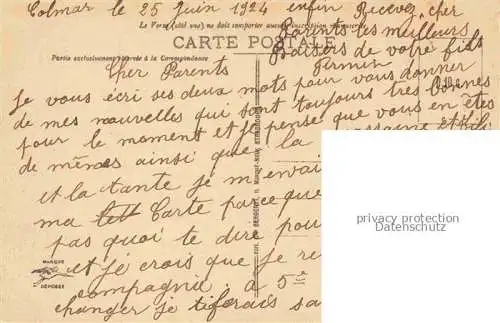 Colmar le 25 Juin 1924 enfin Recevez cher
Parents les meilleurs
Baisers de votre fils
Firmin
Le Verso (côté vue) ne doit comporter aucune
CARTE POSTALE
Partie exclusivement réservée à la Correspondance
Cher Parents
Je vous écri ses deux mots pour vous donner
de mes nouvelles qui sont toujours tres bonnes
pour le moment et je pense que vous en êtes
de mêmes ainsi que la
et la tante je m'en vai
ma Carte parce que
pas quoi te dire pou
et je crois que je re
compagnie à 5e
changer je ti ferais sa
MARQUE
DÉPOSÉE
privacy protection